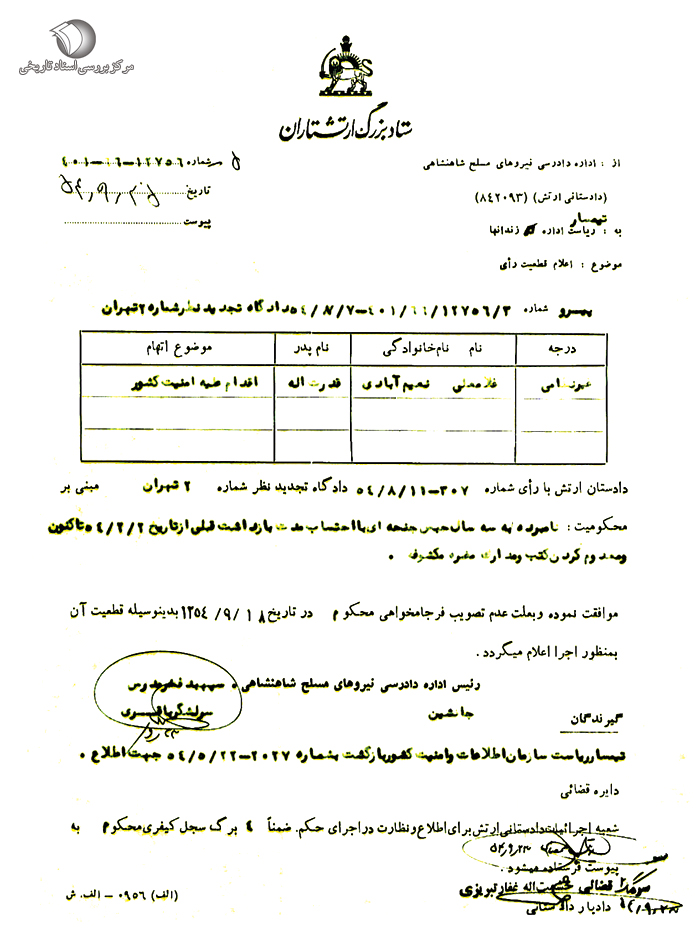 مرکز بررسی اسناد تاریخی
ستاد بزرگ ارتشتاران
از : اداره دادرسی نیروهای مسلح شاهنشاهی
شماره ۱۲۷۵۶-۱۶-۴۰۱
(دادستانی ارتش) (۸۴۲۰۹۳)
تاریخ
تیمسار
به : ریاست اداره زندانها
پیوست
موضوع : اعلام قطعیت رأی
پیرو شماره ۴۰۱/۶۶/۱۲۷۵۶/۳-۵۴/۸/۷ دادگاه تجدید نظر شماره ۲ تهران
درجه نام نام‌خانوادگی نام پدر موضوع اتهام
غیرنظامی غلامعلی نعیم آبادی قدرت اله اقدام علیه امنیت کشور
دادستان ارتش با رأی شماره ۳۰۷-۵۴/۸/۱۱ دادگاه تجدید نظر شماره ۲ تهران مبنی بر
محکومیت : نامبرده به سه سال حبس جنحه ای با احتساب مدت بازداشت قبلی از تاریخ ۵۴/۲/۲ تاکنون
ومعدوم کردن کتب ومدارک مضره مکشوفه .
موافقت نموده و بعلت عدم تصویب فرجامخواهی محکوم م در تاریخ ۱۲۵۴/۹/۱۸ بدینوسیله قطعیت آن
بمنظور اجرا اعلام میگردد .
رئیس اداره دادرسی نیروهای مسلح شاهنشاهی . سپهبد فخرمدرس
جانشین سرلشگر
گیرندگان
تیمسار ریاست سازمان اطلاعات وامنیت کشور بازگشت بشماره ۲۰۲۷-۵۴/۵/۲۲ جهت اطلاع .
دایره قضائی
شعبه اجرائیات دادستانی ارتش برای اطلاع و نظارت در اجرای حکم. ضمناً ۴ برگ سجل کیفری محکوم م به
۵۴/۹/۲۳
پیوست فرستاده میشود .
قضائی حشمت‌اله غفار تبریزی
دادیار دادستانی
(الف) ۰۹۵۶ - الف. ش